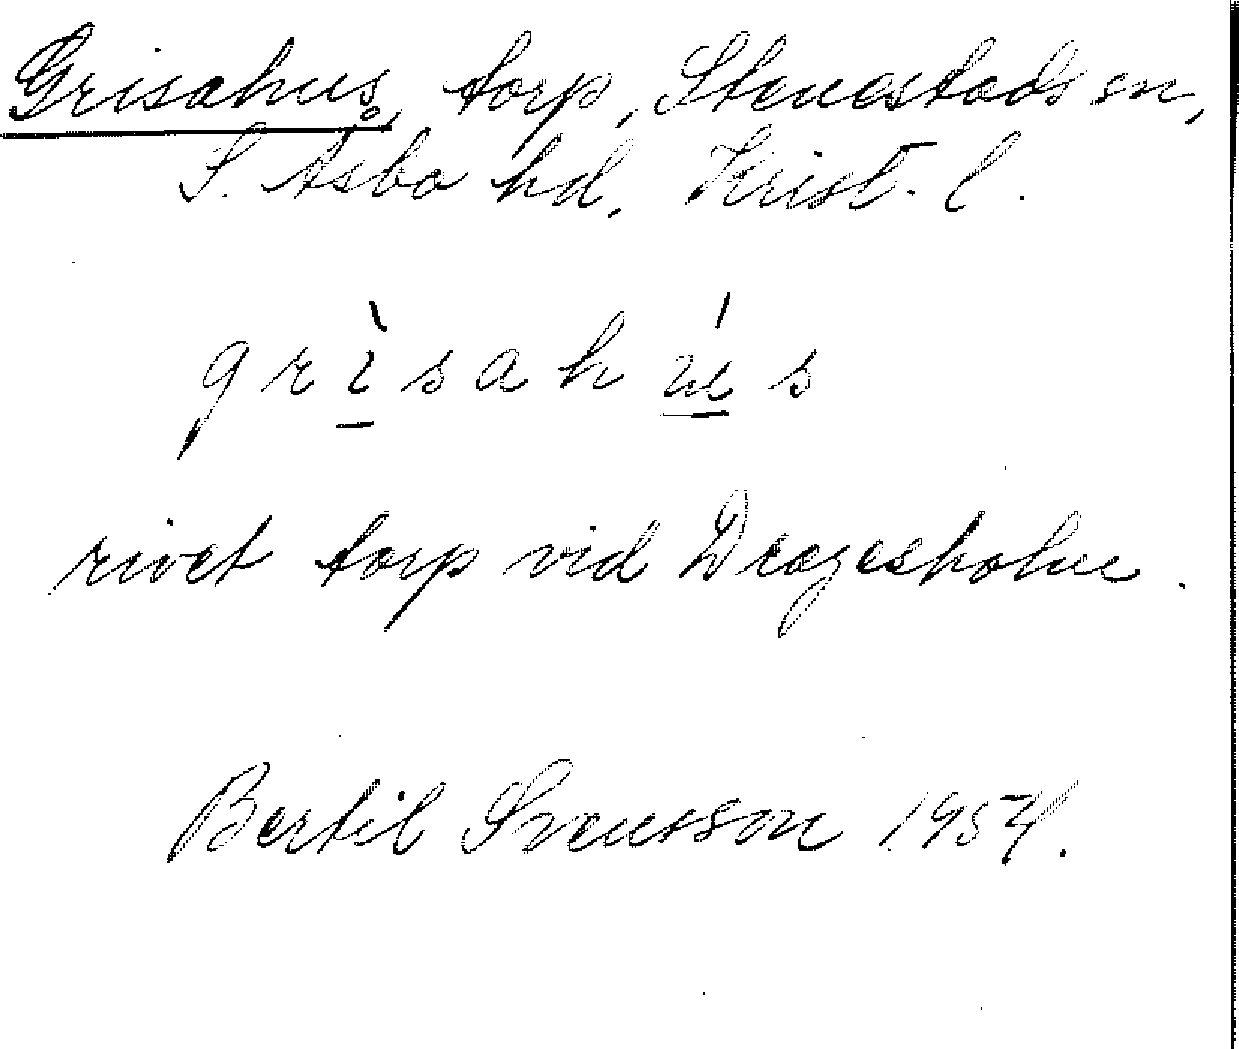 Grisahus, torp, Stenestads sn,
S. Åsbo hd, Krist. l.
grìsahús
rivet torp vid Dragesholm.
Bertil Svensson 1954.